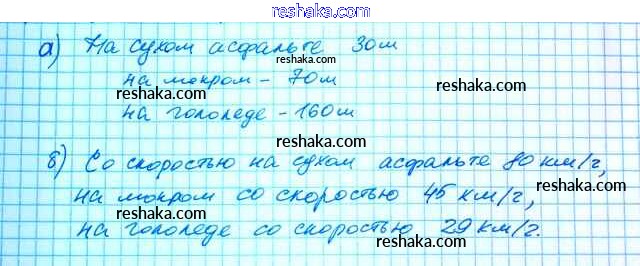 reshaka.com
а) На сухом асфальте 30м
на мокром - 70м
reshaka.com reshaka.com
на гололеде - 160м
reshaka.com
б) Со скоростью на сухом асфальте 80 км/г,
reshaka.com
на мокром со скоростью 45 км/г,
reshaka.com
на гололеде со скоростью 29 км/г.
reshaka.com
reshaka.com